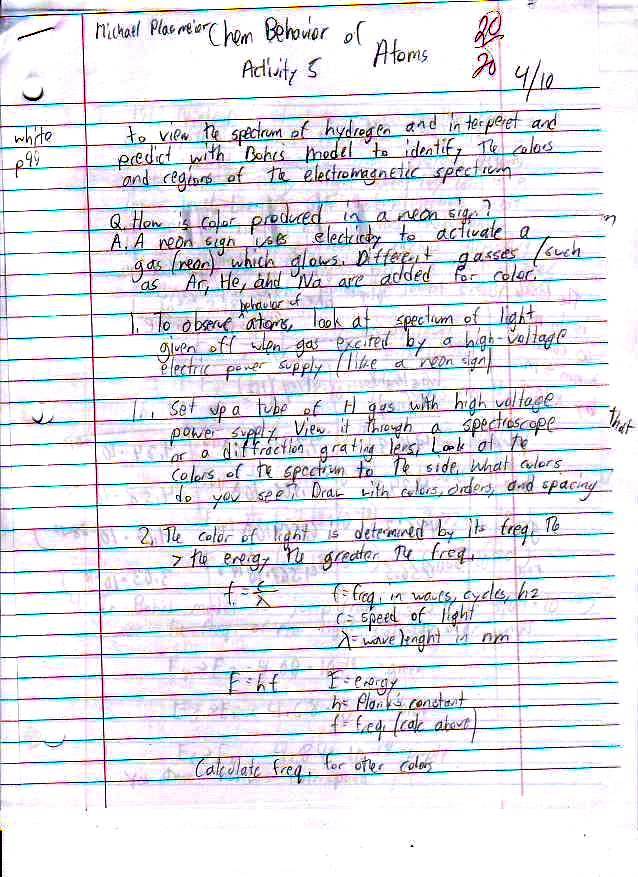 Michael Plasmeier Chem Behavior of Atoms
Activity 5
20
20
4/10
white
p99
to view the spectrum of hydrogen and interperet and
predict with Bohrs model to identify the colors
and regions of the electromagnetic spectrum
Q. How is color produced in a neon sign?
A. A neon sign uses electricity to activate a
gas (neon) which glows. Different gasses (such
as Ar, He, and Na are added for color.
1. To observe behavior of atoms, look at spectium of light
given off when gas excited by a high-voltage
electric power supply (like a neon sign)
1. Set up a tube of H gas with high voltage
power supply. View it through a spectroscope
or a diffraction grating lens, Look at the
colors of the spectrum to the side. What colors that
do you see? Draw with colors, orders, and spacing
2. The color of light is determined by its freq. The
> the energy the greater the freq.
f = c/λ f = freq. in waves, cycles, hz
c = speed of light
λ = wave lenght in nm
E = hf E = energy
h = Plank's constant
f = freq. (calc above)
Calculate freq. for other colors